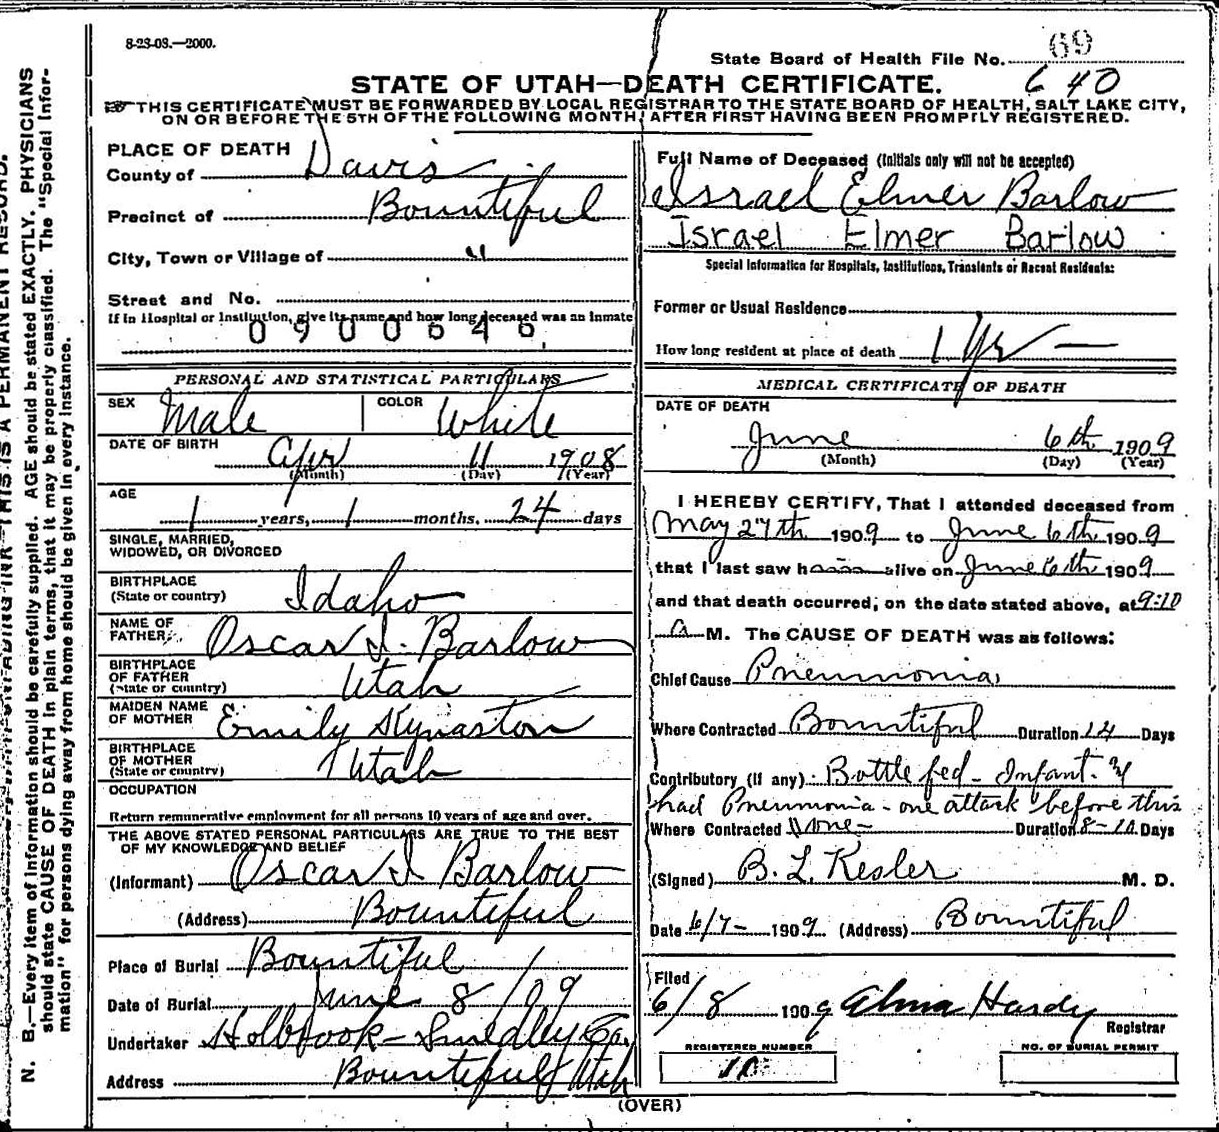 8-23-08.—2000.
State Board of Health File No. 69
640
STATE OF UTAH—DEATH CERTIFICATE.
THIS CERTIFICATE MUST BE FORWARDED BY LOCAL REGISTRAR TO THE STATE BOARD OF HEALTH, SALT LAKE CITY,
ON OR BEFORE THE 5TH OF THE FOLLOWING MONTH, AFTER FIRST HAVING BEEN PROMPTLY REGISTERED.
PLACE OF DEATH
County of Davis
Precinct of Bountiful
City, Town or Village of "
Street and No.
If in Hospital or Institution, give its name and how long deceased was an inmate
0900646
PERSONAL AND STATISTICAL PARTICULARS
SEX Male COLOR White
DATE OF BIRTH
Apr 11 1908
(Month) (Day) (Year)
AGE
1 years, 1 months, 24 days
SINGLE, MARRIED,
WIDOWED, OR DIVORCED
BIRTHPLACE
(State or country) Idaho
NAME OF
FATHER Oscar I. Barlow
BIRTHPLACE
OF FATHER
(State or country) Utah
MAIDEN NAME
OF MOTHER Emily Kynaston
BIRTHPLACE
OF MOTHER
(State or country) Utah
OCCUPATION
Return remunerative employment for all persons 10 years of age and over.
THE ABOVE STATED PERSONAL PARTICULARS ARE TRUE TO THE BEST
OF MY KNOWLEDGE AND BELIEF
(Informant) Oscar I Barlow
(Address) Bountiful
Place of Burial Bountiful
Date of Burial June 8/09
Undertaker Holbrook-Smedley Co.
Address Bountiful Utah
Full Name of Deceased (Initials only will not be accepted)
Israel Elmer Barlow
Israel Elmer Barlow
Special Information for Hospitals, Institutions, Transients or Recent Residents:
Former or Usual Residence
How long resident at place of death 1 Yr —
MEDICAL CERTIFICATE OF DEATH
DATE OF DEATH
June 6th 1909
(Month) (Day) (Year)
I HEREBY CERTIFY, That I attended deceased from
May 27th 1909 to June 6th 1909
that I last saw h alive on June 6th 1909
and that death occurred, on the date stated above, at 9:10
A M. The CAUSE OF DEATH was as follows:
Chief Cause Pneumonia
Where Contracted Bountiful Duration 14 Days
Contributory (if any) Bottle fed - Infant. &
had Pneumonia - one attack before this
Where Contracted Duration 8-10 Days
(Signed) B. L. Kesler M. D.
Date 6/7- 1909 (Address) Bountiful
Filed
6/8 1909 Alma Hardy
Registrar
REGISTERED NUMBER
NO. OF BURIAL PERMIT
(OVER)
N. B.—Every item of information should be carefully supplied. AGE should be stated EXACTLY. PHYSICIANS
should state CAUSE OF DEATH in plain terms, that it may be properly classified. The "Special Infor-
mation" for persons dying away from home should be given in every instance.